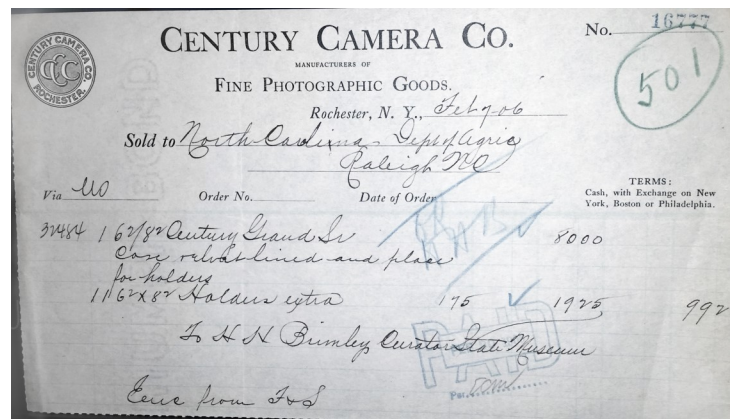 CENTURY CAMERA CO. ROCHESTER.
CCC
CENTURY CAMERA CO.
No. 16777
501
MANUFACTURERS OF
FINE PHOTOGRAPHIC GOODS.
Rochester, N. Y., Feb 7-06
Sold to North Carolina - Dept of Agric
Raleigh NC
TERMS:
Cash, with Exchange on New
York, Boston or Philadelphia.
Via
Order No.
Date of Order
32484 1 6½/8½ Century Grand Sr 8000
Case velvet lined and place
for holders
11 6½X8½ Holders extra 175 1925 992
To H H Brimley Curator State Museum
PAID
Per
from F&S